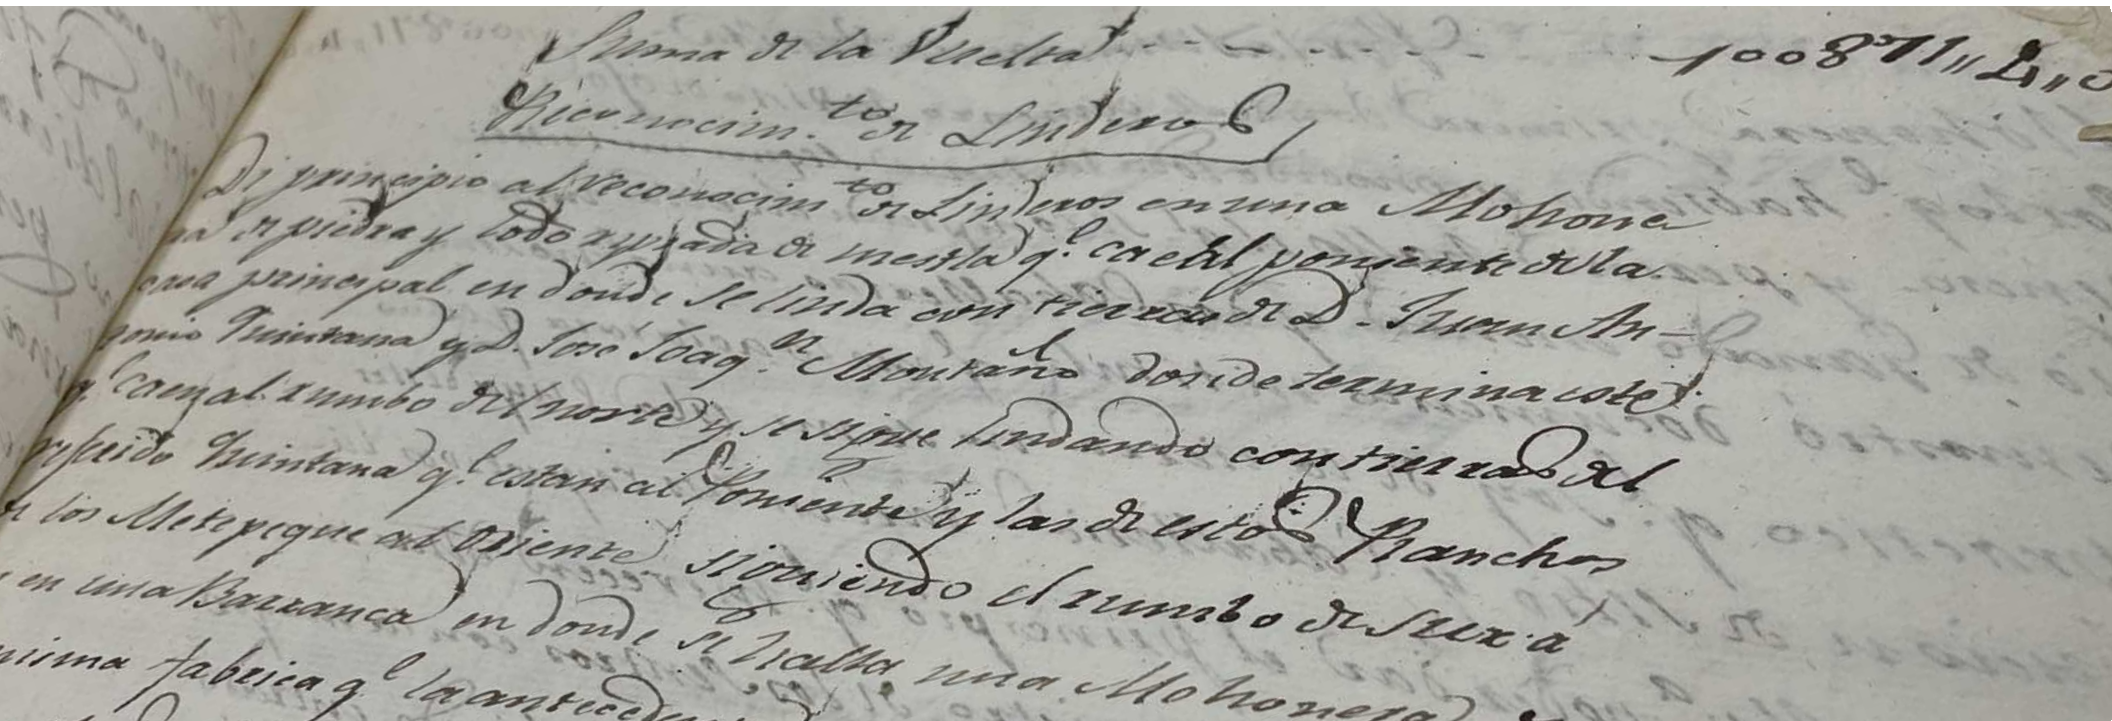 Suma de la Vuelta - - - - - - - 100871,, 2,, 0
Reconocim.to de Linderos
Di principio al reconocim.to de Linderos en una Mohone
ra de piedra y lodo rypiada de mescla q.e cae al poniente de la
casa principal en donde se linda con tierras de D. Juan An-
tonio Quintana y D. José Joaq.n Montaño donde termina este
q.e caen al rumbo del norte y se sigue lindando con tierras del
referido Quintana q.e estan al Poniente y las de estos Ranchos
de los Metepeque al Oriente siguiendo el rumbo de Sur á
en una Barranca en donde se halla una Mohonera
misma fabrica q.e la anteced